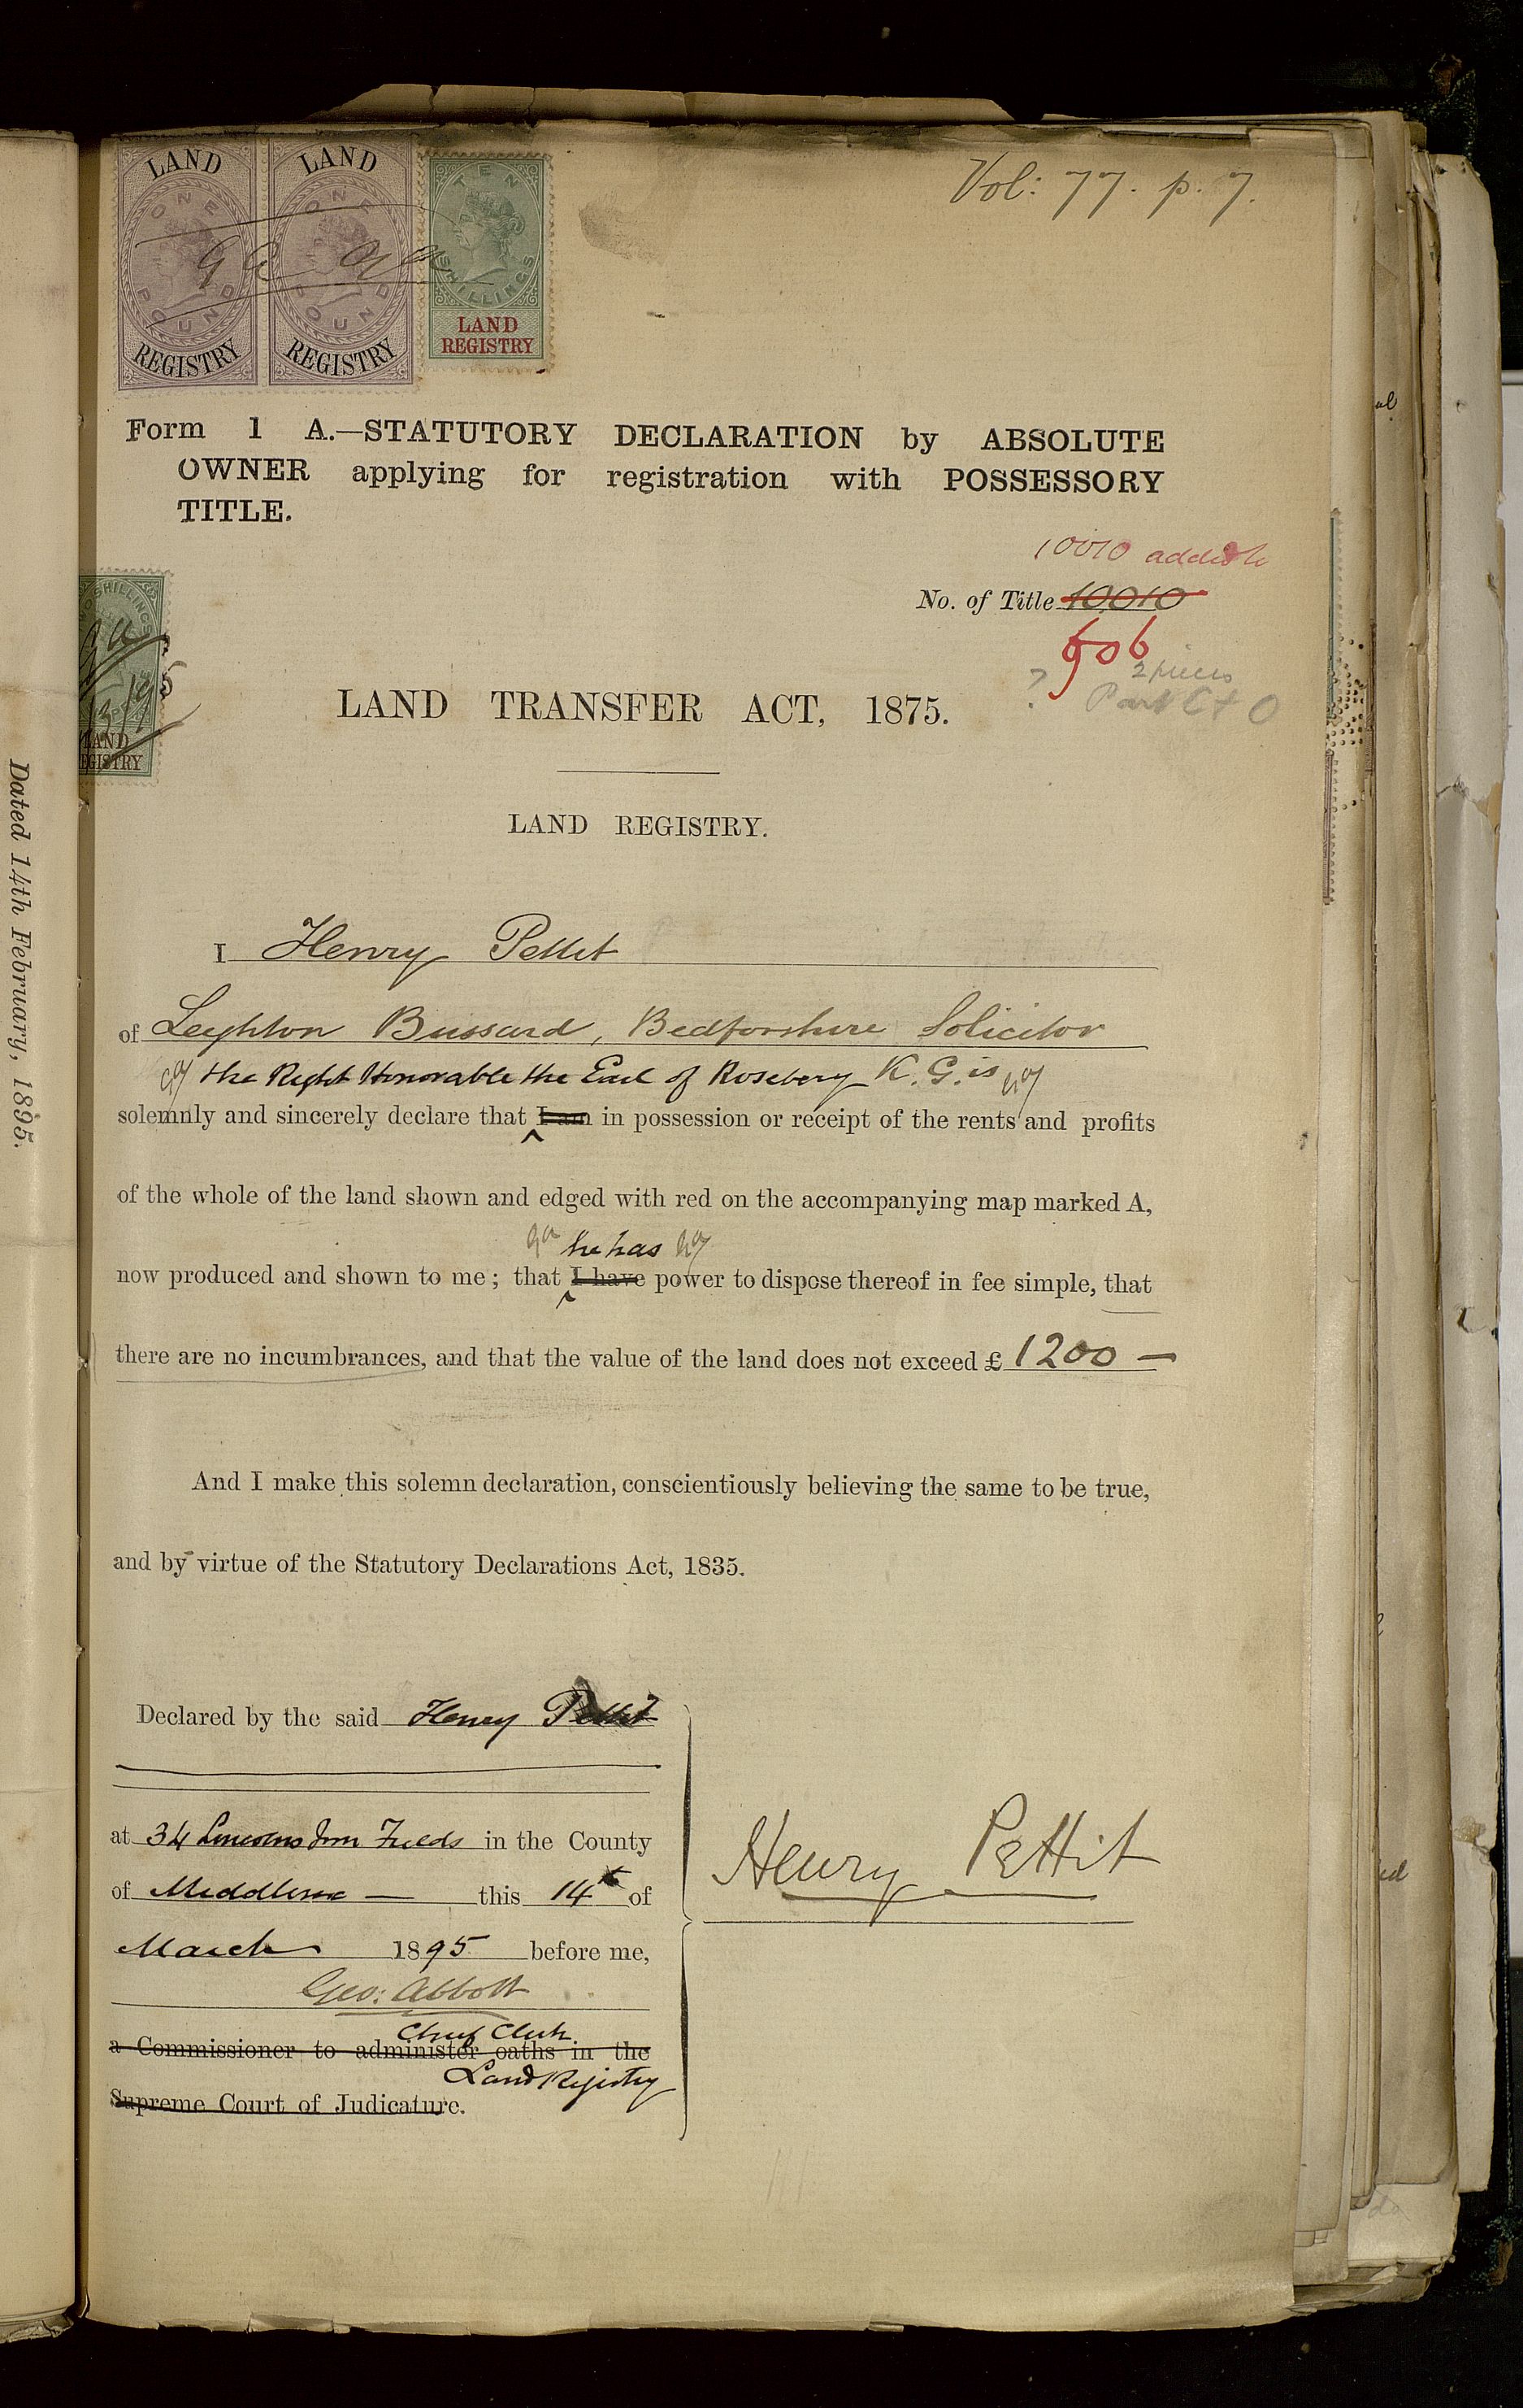 Vol: 77. p. 7.
LAND
ONE
POUND
REGISTRY
LAND
ONE
POUND
REGISTRY
TEN
SHILLINGS
LAND
REGISTRY
Form 1 A.—STATUTORY DECLARATION by ABSOLUTE
OWNER applying for registration with POSSESSORY
TITLE.
10010 added to
No. of Title 10010
606
2 pieces
?
SHILLINGS
LAND
REGISTRY
LAND TRANSFER ACT, 1875.
LAND REGISTRY.
I Henry Pettit
of Leighton Bussard, Bedfordshire Solicitor
the Right Honorable the Earl of Rosebery K. G. is
solemnly and sincerely declare that I am in possession or receipt of the rents and profits
of the whole of the land shown and edged with red on the accompanying map marked A,
he has
now produced and shown to me; that I have power to dispose thereof in fee simple, that
there are no incumbrances, and that the value of the land does not exceed £ 1200 —
And I make this solemn declaration, conscientiously believing the same to be true,
and by virtue of the Statutory Declarations Act, 1835.
Declared by the said Henry Pettit
at 34 Lincolns Inn Fields in the County
of Middlesex — this 14th of
March 1895 before me,
Geo: Abbott
Chief Clerk
a Commissioner to administer oaths in the
Land Registry
Supreme Court of Judicature.
Henry Pettit
Dated 14th February, 1895.